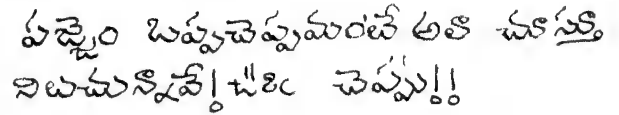 పజ్జెం ఒప్పచెప్పమంటే అలా చూస్తూ
నిలుచున్నావే! చదిఁ చెప్పు!!